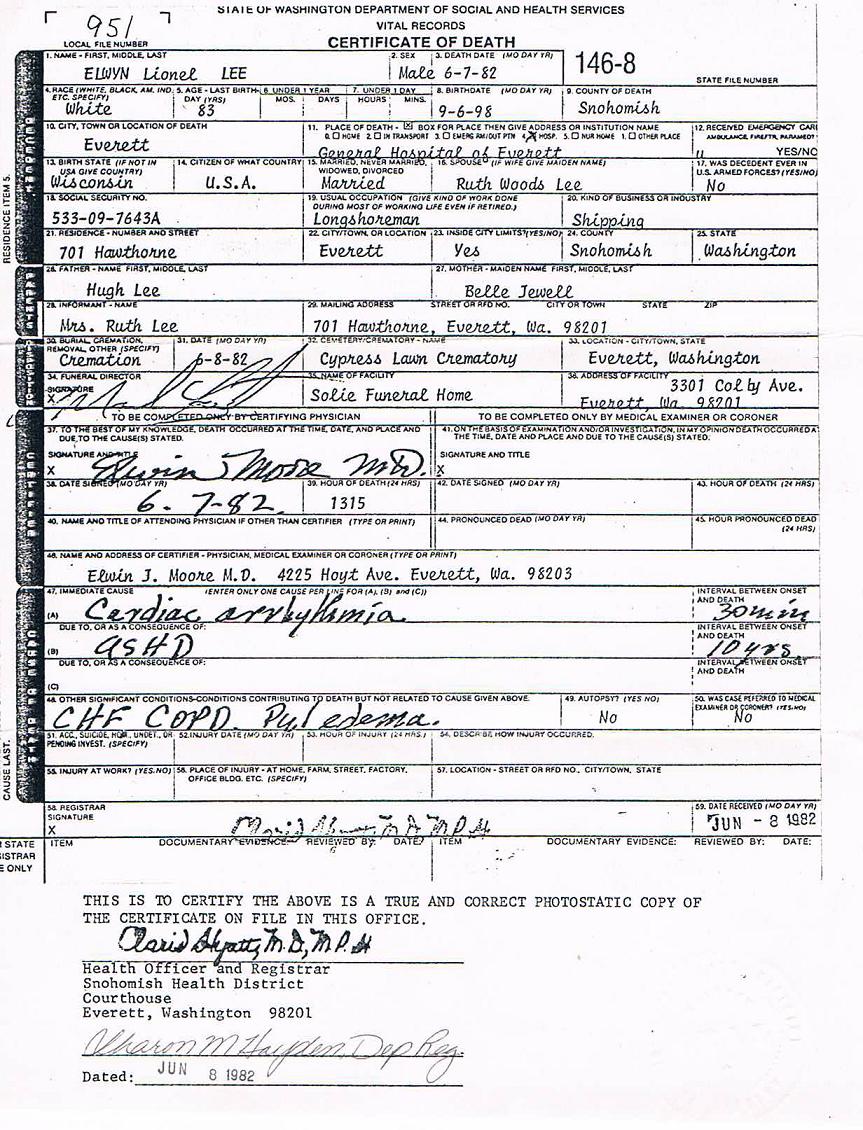 STATE OF WASHINGTON DEPARTMENT OF SOCIAL AND HEALTH SERVICES
VITAL RECORDS
CERTIFICATE OF DEATH
951
LOCAL FILE NUMBER
146-8
STATE FILE NUMBER
1. NAME - FIRST, MIDDLE, LAST 2. SEX 3. DEATH DATE (MO DAY YR)
ELWYN Lionel LEE Male 6-7-82
4. RACE (WHITE, BLACK, AM. IND, ETC. SPECIFY) 5. AGE - LAST BIRTH- DAY (YRS) 6. UNDER 1 YEAR MOS. DAYS 7. UNDER 1 DAY HOURS MINS. 8. BIRTHDATE (MO DAY YR) 9. COUNTY OF DEATH
White 83 9-6-98 Snohomish
10. CITY, TOWN OR LOCATION OF DEATH 11. PLACE OF DEATH - BOX FOR PLACE THEN GIVE ADDRESS OR INSTITUTION NAME 12. RECEIVED EMERGENCY CARE
0. HOME 2. IN TRANSPORT 3. EMERG RM/OUT PTN 4. HOSP. 5. NUR HOME 1. OTHER PLACE YES/NO
Everett General Hospital of Everett
13. BIRTH STATE (IF NOT IN USA GIVE COUNTRY) 14. CITIZEN OF WHAT COUNTRY 15. MARRIED, NEVER MARRIED, WIDOWED, DIVORCED 16. SPOUSE (IF WIFE GIVE MAIDEN NAME) 17. WAS DECEDENT EVER IN U.S. ARMED FORCES? (YES/NO)
Wisconsin U.S.A. Married Ruth Woods Lee No
18. SOCIAL SECURITY NO. 19. USUAL OCCUPATION (GIVE KIND OF WORK DONE DURING MOST OF WORKING LIFE EVEN IF RETIRED.) 20. KIND OF BUSINESS OR INDUSTRY
533-09-7643A Longshoreman Shipping
21. RESIDENCE - NUMBER AND STREET 22. CITY/TOWN, OR LOCATION 23. INSIDE CITY LIMITS? (YES/NO) 24. COUNTY 25. STATE
701 Hawthorne Everett Yes Snohomish Washington
26. FATHER - NAME FIRST, MIDDLE, LAST 27. MOTHER - MAIDEN NAME FIRST, MIDDLE, LAST
Hugh Lee Belle Jewell
28. INFORMANT - NAME 29. MAILING ADDRESS STREET OR RFD NO. CITY OR TOWN STATE ZIP
Mrs. Ruth Lee 701 Hawthorne, Everett, Wa. 98201
30. BURIAL, CREMATION, REMOVAL, OTHER (SPECIFY) 31. DATE (MO DAY YR) 32. CEMETERY/CREMATORY - NAME 33. LOCATION - CITY/TOWN, STATE
Cremation 6-8-82 Cypress Lawn Crematory Everett, Washington
34. FUNERAL DIRECTOR SIGNATURE X 35. NAME OF FACILITY 36. ADDRESS OF FACILITY
Solie Funeral Home 3301 Colby Ave.
Everett, Wa. 98201
TO BE COMPLETED ONLY BY CERTIFYING PHYSICIAN TO BE COMPLETED ONLY BY MEDICAL EXAMINER OR CORONER
37. TO THE BEST OF MY KNOWLEDGE, DEATH OCCURRED AT THE TIME, DATE, AND PLACE AND DUE TO THE CAUSE(S) STATED.
41. ON THE BASIS OF EXAMINATION AND/OR INVESTIGATION, IN MY OPINION DEATH OCCURRED AT THE TIME, DATE AND PLACE AND DUE TO THE CAUSE(S) STATED.
SIGNATURE AND TITLE SIGNATURE AND TITLE
X Elwin J Moore M.D. X
38. DATE SIGNED (MO DAY YR) 39. HOUR OF DEATH (24 HRS) 42. DATE SIGNED (MO DAY YR) 43. HOUR OF DEATH (24 HRS)
6-7-82 1315
40. NAME AND TITLE OF ATTENDING PHYSICIAN IF OTHER THAN CERTIFIER (TYPE OR PRINT) 44. PRONOUNCED DEAD (MO DAY YR) 45. HOUR PRONOUNCED DEAD (24 HRS)
46. NAME AND ADDRESS OF CERTIFIER - PHYSICIAN, MEDICAL EXAMINER OR CORONER (TYPE OR PRINT)
Elwin J. Moore M.D. 4225 Hoyt Ave. Everett, Wa. 98203
47. IMMEDIATE CAUSE (ENTER ONLY ONE CAUSE PER LINE FOR (A), (B) and (C)) INTERVAL BETWEEN ONSET AND DEATH
(A) Cardiac arrhythmia 30 min
DUE TO, OR AS A CONSEQUENCE OF: INTERVAL BETWEEN ONSET AND DEATH
(B) ASHD 10 yrs.
DUE TO, OR AS A CONSEQUENCE OF: INTERVAL BETWEEN ONSET AND DEATH
(C)
48. OTHER SIGNIFICANT CONDITIONS-CONDITIONS CONTRIBUTING TO DEATH BUT NOT RELATED TO CAUSE GIVEN ABOVE. 49. AUTOPSY? (YES NO) 50. WAS CASE REFERRED TO MEDICAL EXAMINER OR CORONER? (YES-NO)
CHF COPD. Pul edema. No No
51. ACC., SUICIDE, HOM., UNDET., OR PENDING INVEST. (SPECIFY) 52. INJURY DATE (MO DAY YR) 53. HOUR OF INJURY (24 HRS.) 54. DESCRIBE HOW INJURY OCCURRED.
55. INJURY AT WORK? (YES.NO) 56. PLACE OF INJURY - AT HOME, FARM, STREET, FACTORY, OFFICE BLDG. ETC. (SPECIFY) 57. LOCATION - STREET OR RFD NO., CITY/TOWN, STATE
58. REGISTRAR SIGNATURE 59. DATE RECEIVED (MO DAY YR)
X JUN - 8 1982
ITEM DOCUMENTARY EVIDENCE: REVIEWED BY: DATE: ITEM DOCUMENTARY EVIDENCE: REVIEWED BY: DATE:
RESIDENCE ITEM 5.
CAUSE LAST.
STATE
ISTRAR
E ONLY
THIS IS TO CERTIFY THE ABOVE IS A TRUE AND CORRECT PHOTOSTATIC COPY OF
THE CERTIFICATE ON FILE IN THIS OFFICE.
Clarid Hyatt, M.D, M.P.H
Health Officer and Registrar
Snohomish Health District
Courthouse
Everett, Washington 98201
Sharon M Hayden Dep Reg.
Dated: JUN 8 1982